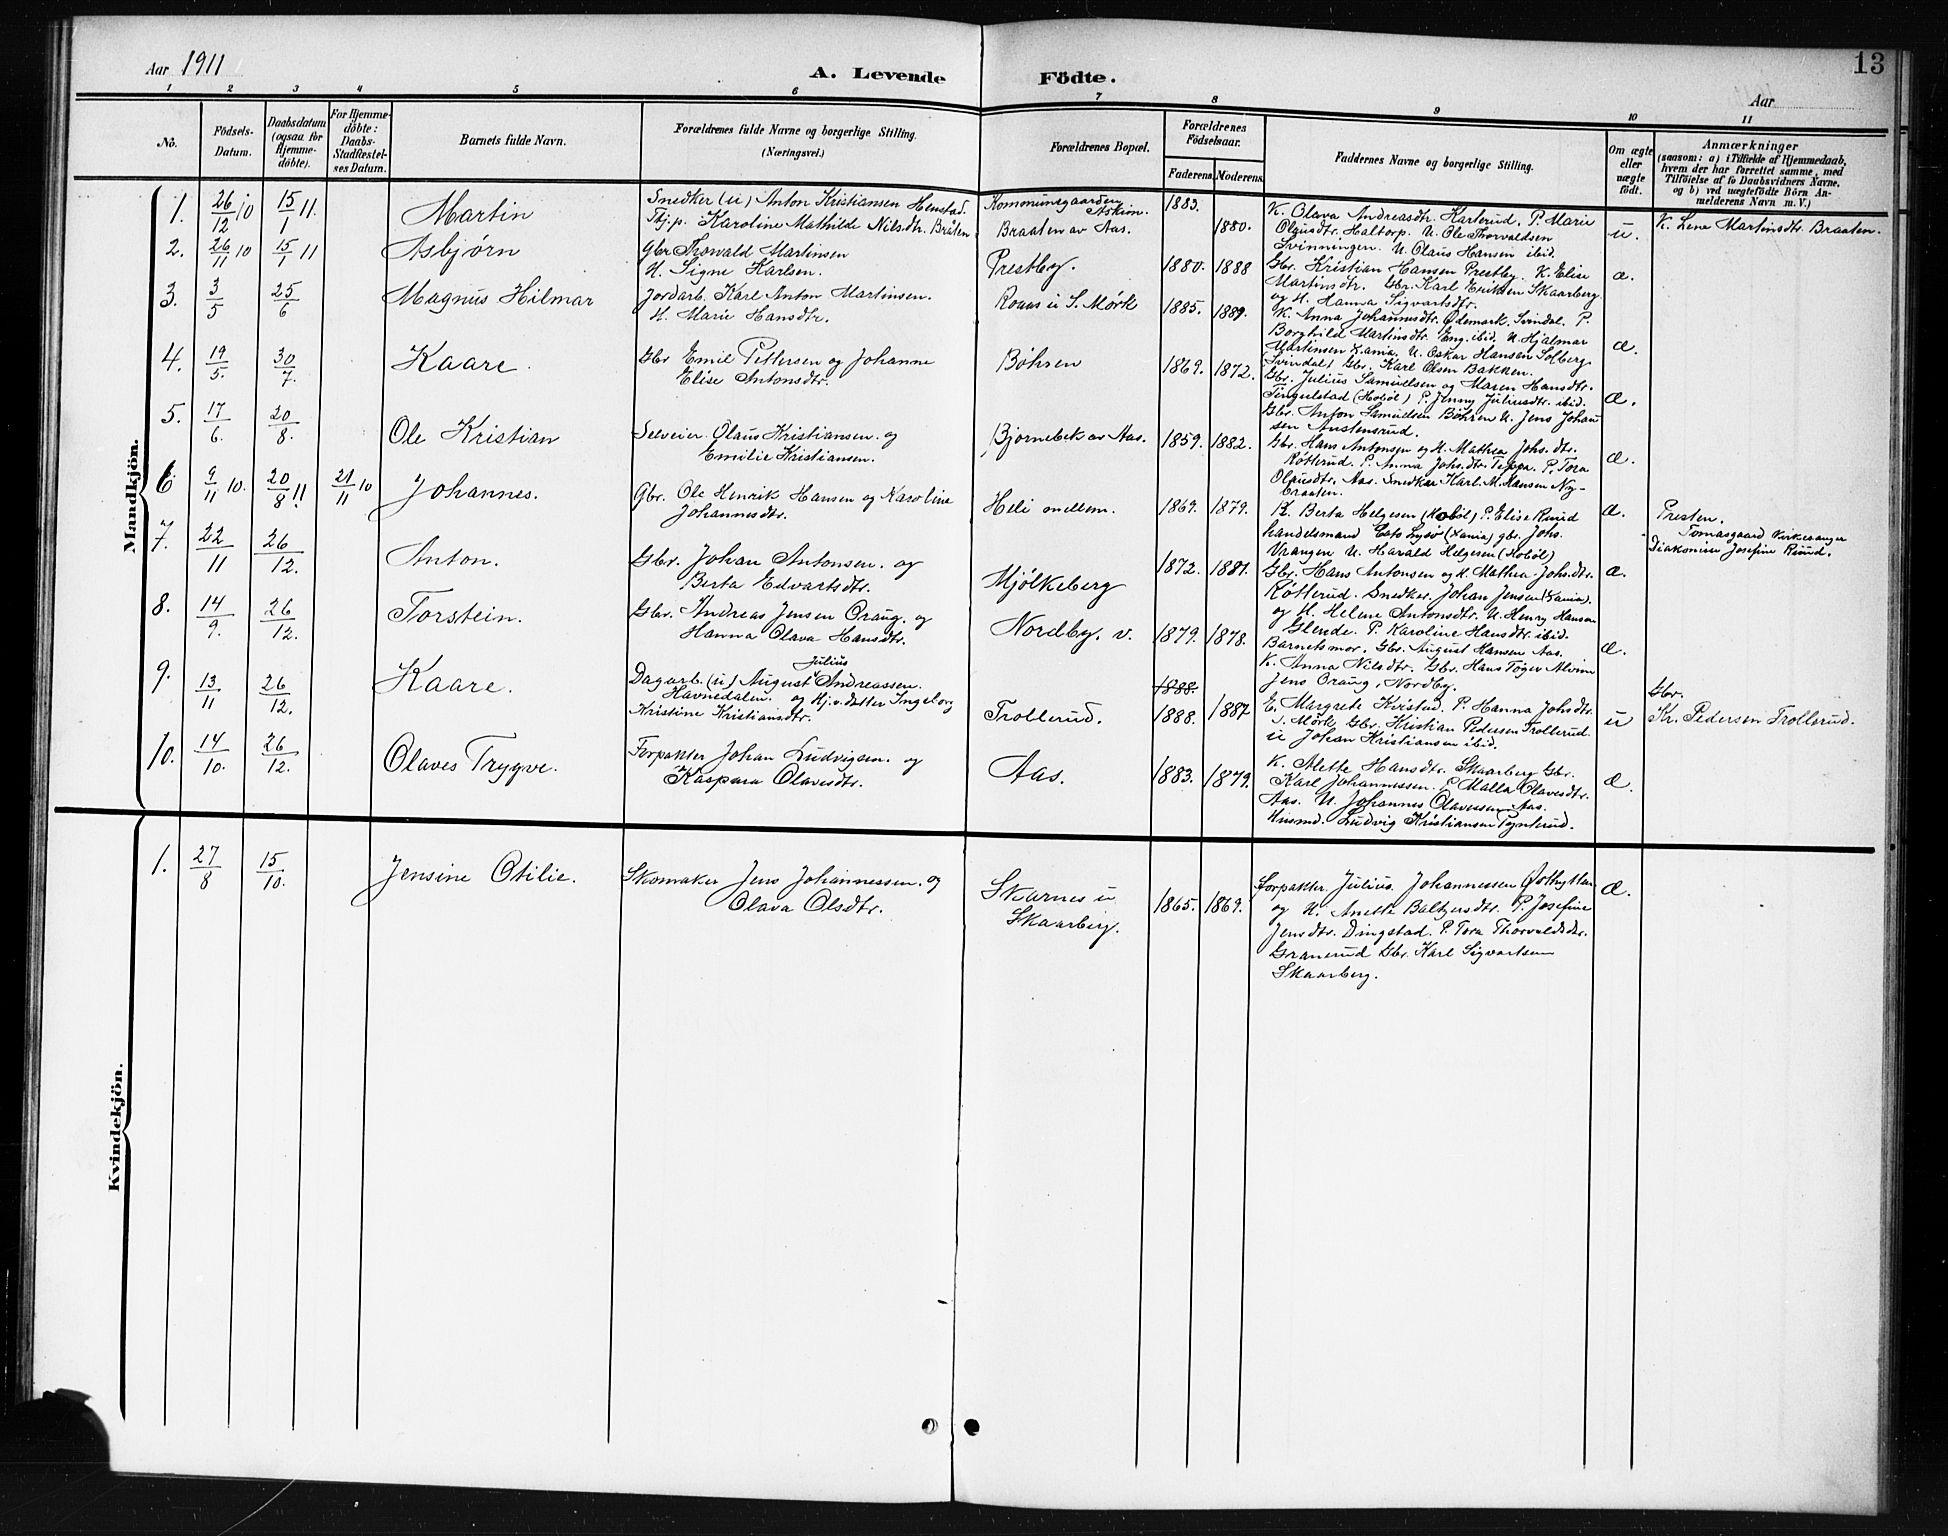 13
Aar 1911
A. Levende Födte.
Aar
1 2 3 4 5 6 7 8 9 10 11
No.
Födsels-
Datum.
Daabsdatum
(ogsaa for
Hjemme-
döbte).
For Hjemme-
döbte:
Daabs-
Stadfæstel-
ses Datum.
Barnets fulde Navn.
Forældrenes fulde Navne og borgerlige Stilling.
(Næringsvei.)
Forældrenes Bopæl.
Forældrenes
Födselsaar.
Faderens.
Moderens.
Faddernes Navne og borgerlige Stilling.
Om ægte
eller
uægte
født.
Anmærkninger
(saasom: a) i Tilfælde af Hjemmedaab,
hvem der har forrettet samme, med
Tilföielse af to Daabsvidners Navne,
og b) ved uægtefödte Börn An-
melderens Navn m. V.)
Mandkjön.
1. 26/12 10 15/1 11. Martin
Snedker (u) Anton Kristiansen Henstad.
Thj.p. Karoline Mathilde Nilsdtr. Bråten
Kommunsgaarden
Askim.
Braaten av Aas.
1883. 1880.
K. Olava Andreasdtr. Karterud. P. Marie
Olausdtr. Haltorp. U. Ole Thorvaldsen
Svinningen. U. Olaus Hansen ibid.
u.
K. Lene Martinsdtr. Braaten.
2. 26/11 10 15/1 11 Asbjørn
Gbr Thorvald Martinsen
H. Signe Karlsen.
Prestby.
1880. 1888
Gbr. Kristian Hansen Prestby. K. Elise
Martinsdtr. Gbr. Karl Eriksen Skaarberg
og H. Hanna Sigvartsdtr.
æ.
3. 3/5 25/6 Magnus Hilmar
Jordarb. Karl Anton Martinsen.
H. Marie Hansdtr.
Roaas u S. Mørk
1885. 1889.
K. Anna Johannesdtr. Ødemark, Svindal. P.
Borghild Martinsdtr. Eng. ibid. U. Hjalmar
Martinsen Xania. U. Oskar Hansen Solberg
(Svindal) Gbr. Karl Olsen Bakken.
æ.
4. 19/5. 30/7. Kaare.
Gbr Emil Pettersen og Johanne
Elise Antonsdtr.
Bøhren
1869. 1872.
Gbr. Julius Samuelsen og Maren Hansdtr.
Tingulstad (Hobøl) P. Jenny Juliusdtr. ibid.
Gbr. Anton Samuelsen Bøhren U. Jens Johan
sen Austensrud.
æ.
5. 17/6. 20/8. Ole Kristian
Selveier Olaus Kristiansen. og
Emilie Kristiansen.
Bjørnebek av Aas.
1859. 1882.
Gbr. Hans Antonsen og H. Mathea Johs.dtr.
Røtterud. P. Anna Johs.dtr. Teppa. P. Tora
Olausdtr. Aas. Snedker Karl M. Hansen Ny-
braaten.
æ.
6 9/11 10. 20/8 11. 21/11 10 Johannes.
Gbr. Ole Henrik Hansen og Karoline
Johannesdtr.
Heli mellem.
1869. 1879.
K. Berta Helgesen (Hobøl) P. Elise Ruud
handelsmand Cato Lysø (Xania) gbr. Johs.
Vrangen U. Harald Helgesen (Hobøl)
æ.
Presten.
Tomasgaard Kirkesanger
Diakonisse Josefine Ruud.
7. 22/11 26/12. Anton.
Gbr. Johan Antonsen. og
Berta Edvartsdtr.
Mjølkeberg
1872. 1881.
Gbr. Hans Antonsen og H. Mathea Johs.dtr.
Røtterud. Snedker. Johan Jensen (Xania).
og H. Helene Antonsdtr. U. Henry Hansen
Glende. P. Karoline Hansdtr. ibid.
æ.
8. 14/9. 26/12. Torstein.
Gbr. Andreas Jensen Oraug. og
Hanna Olava Hansdtr.
Nordby. v.
1879. 1878.
Barnetsmor. Gbr. August Hansen Aas.
K. Anna Nilsdtr. Gbr. Hans Tøger Alvim
Jens Oraug, Nordby.
æ.
9. 13/11 26/12. Kaare.
Julius
Dagarb. (u) August Andreassen.
Havnedalen. og Hj.v. datter Ingeborg
Kristine Kristiansdtr.
Trollerud.
1888.
1888. 1887
E. Margrete Kvistad. P. Hanna Johsdtr.
S. Mørk Gbr. Kristian Pedersen Trollerud.
U Johan Kristiansen ibid.
u
Gbr.
Kr. Pedersen Trollerud.
10. 14/10. 26/12. Olaves Trygve.
Forpakter Johan Ludvigsen. og
Kaspara Olavesdtr.
Aas.
1883. 1879.
K. Alette Hansdtr. Skaarberg Gbr.
Karl Johannessen. P. Malla Olavesdtr.
Aas. U. Johannes Olavessen Aas.
Husmd. Ludvig Kristiansen Pynterud.
æ.
Kvindekjön.
1. 27/8 15/10. Jensine Otilie.
Skomaker Jens Johannessen. og
Olava Olsdtr.
Skarnes u
Skaarberg.
1865. 1869.
Forpakter. Julius. Johannessen
og H. Anette Baltzersdtr. P. Josefine
Jensdtr. Dingstad. P. Tora Thorvaldsdtr.
Granerud Gbr. Karl Sigvartsen
Skaarberg.
æ.